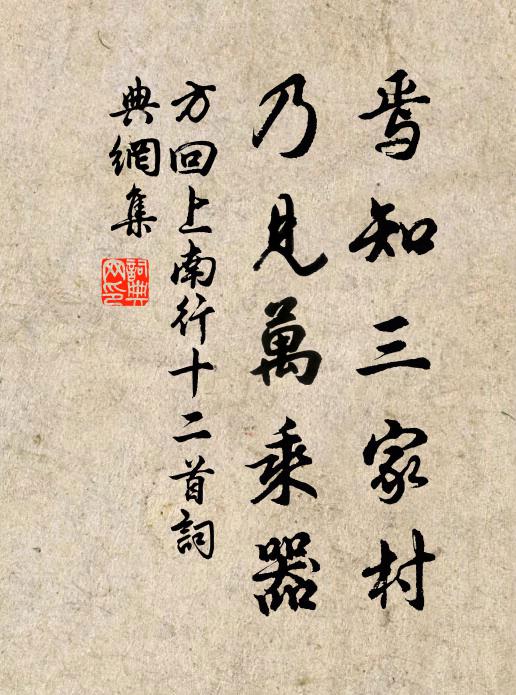 焉知三家村
乃見萬乘器
方回上南行十二首詞
典網集
詞典
网印